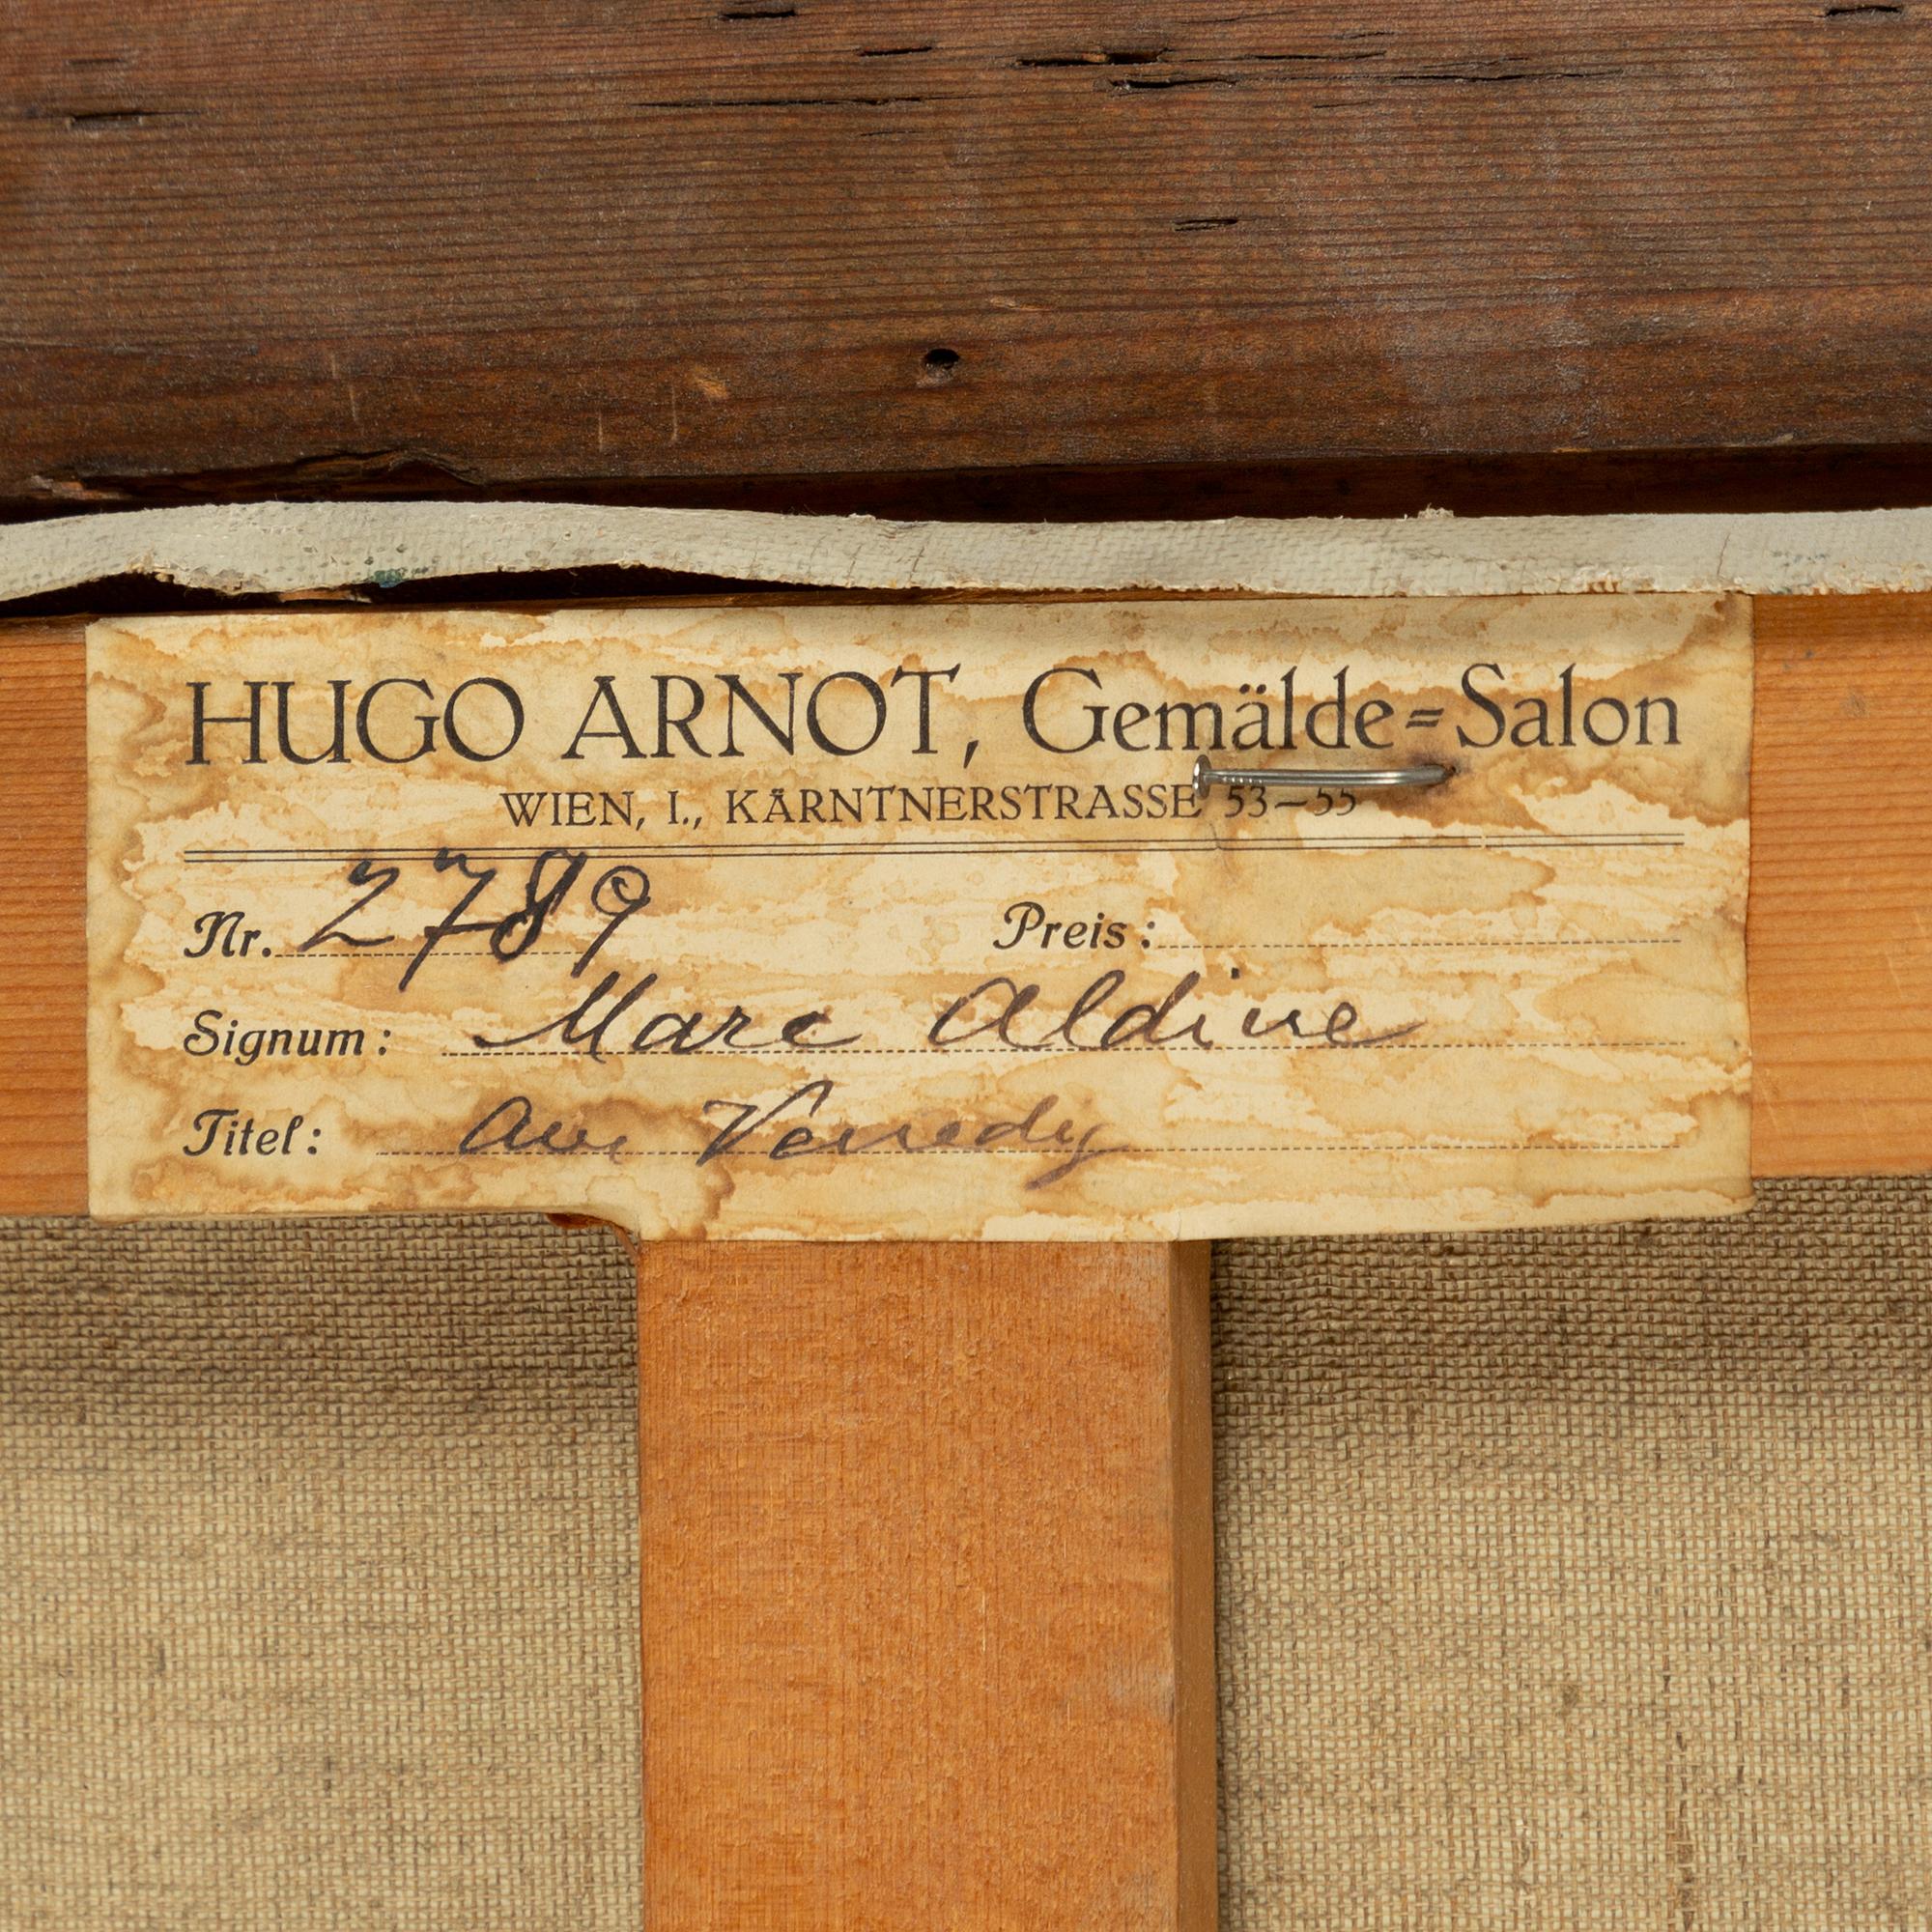 HUGO ARNOT, Gemälde=Salon
WIEN, I., KÄRNTNERSTRASSE 53–55
Nr. 2789 Preis:
Signum: Marc Aldine
Titel: Aus Venedig